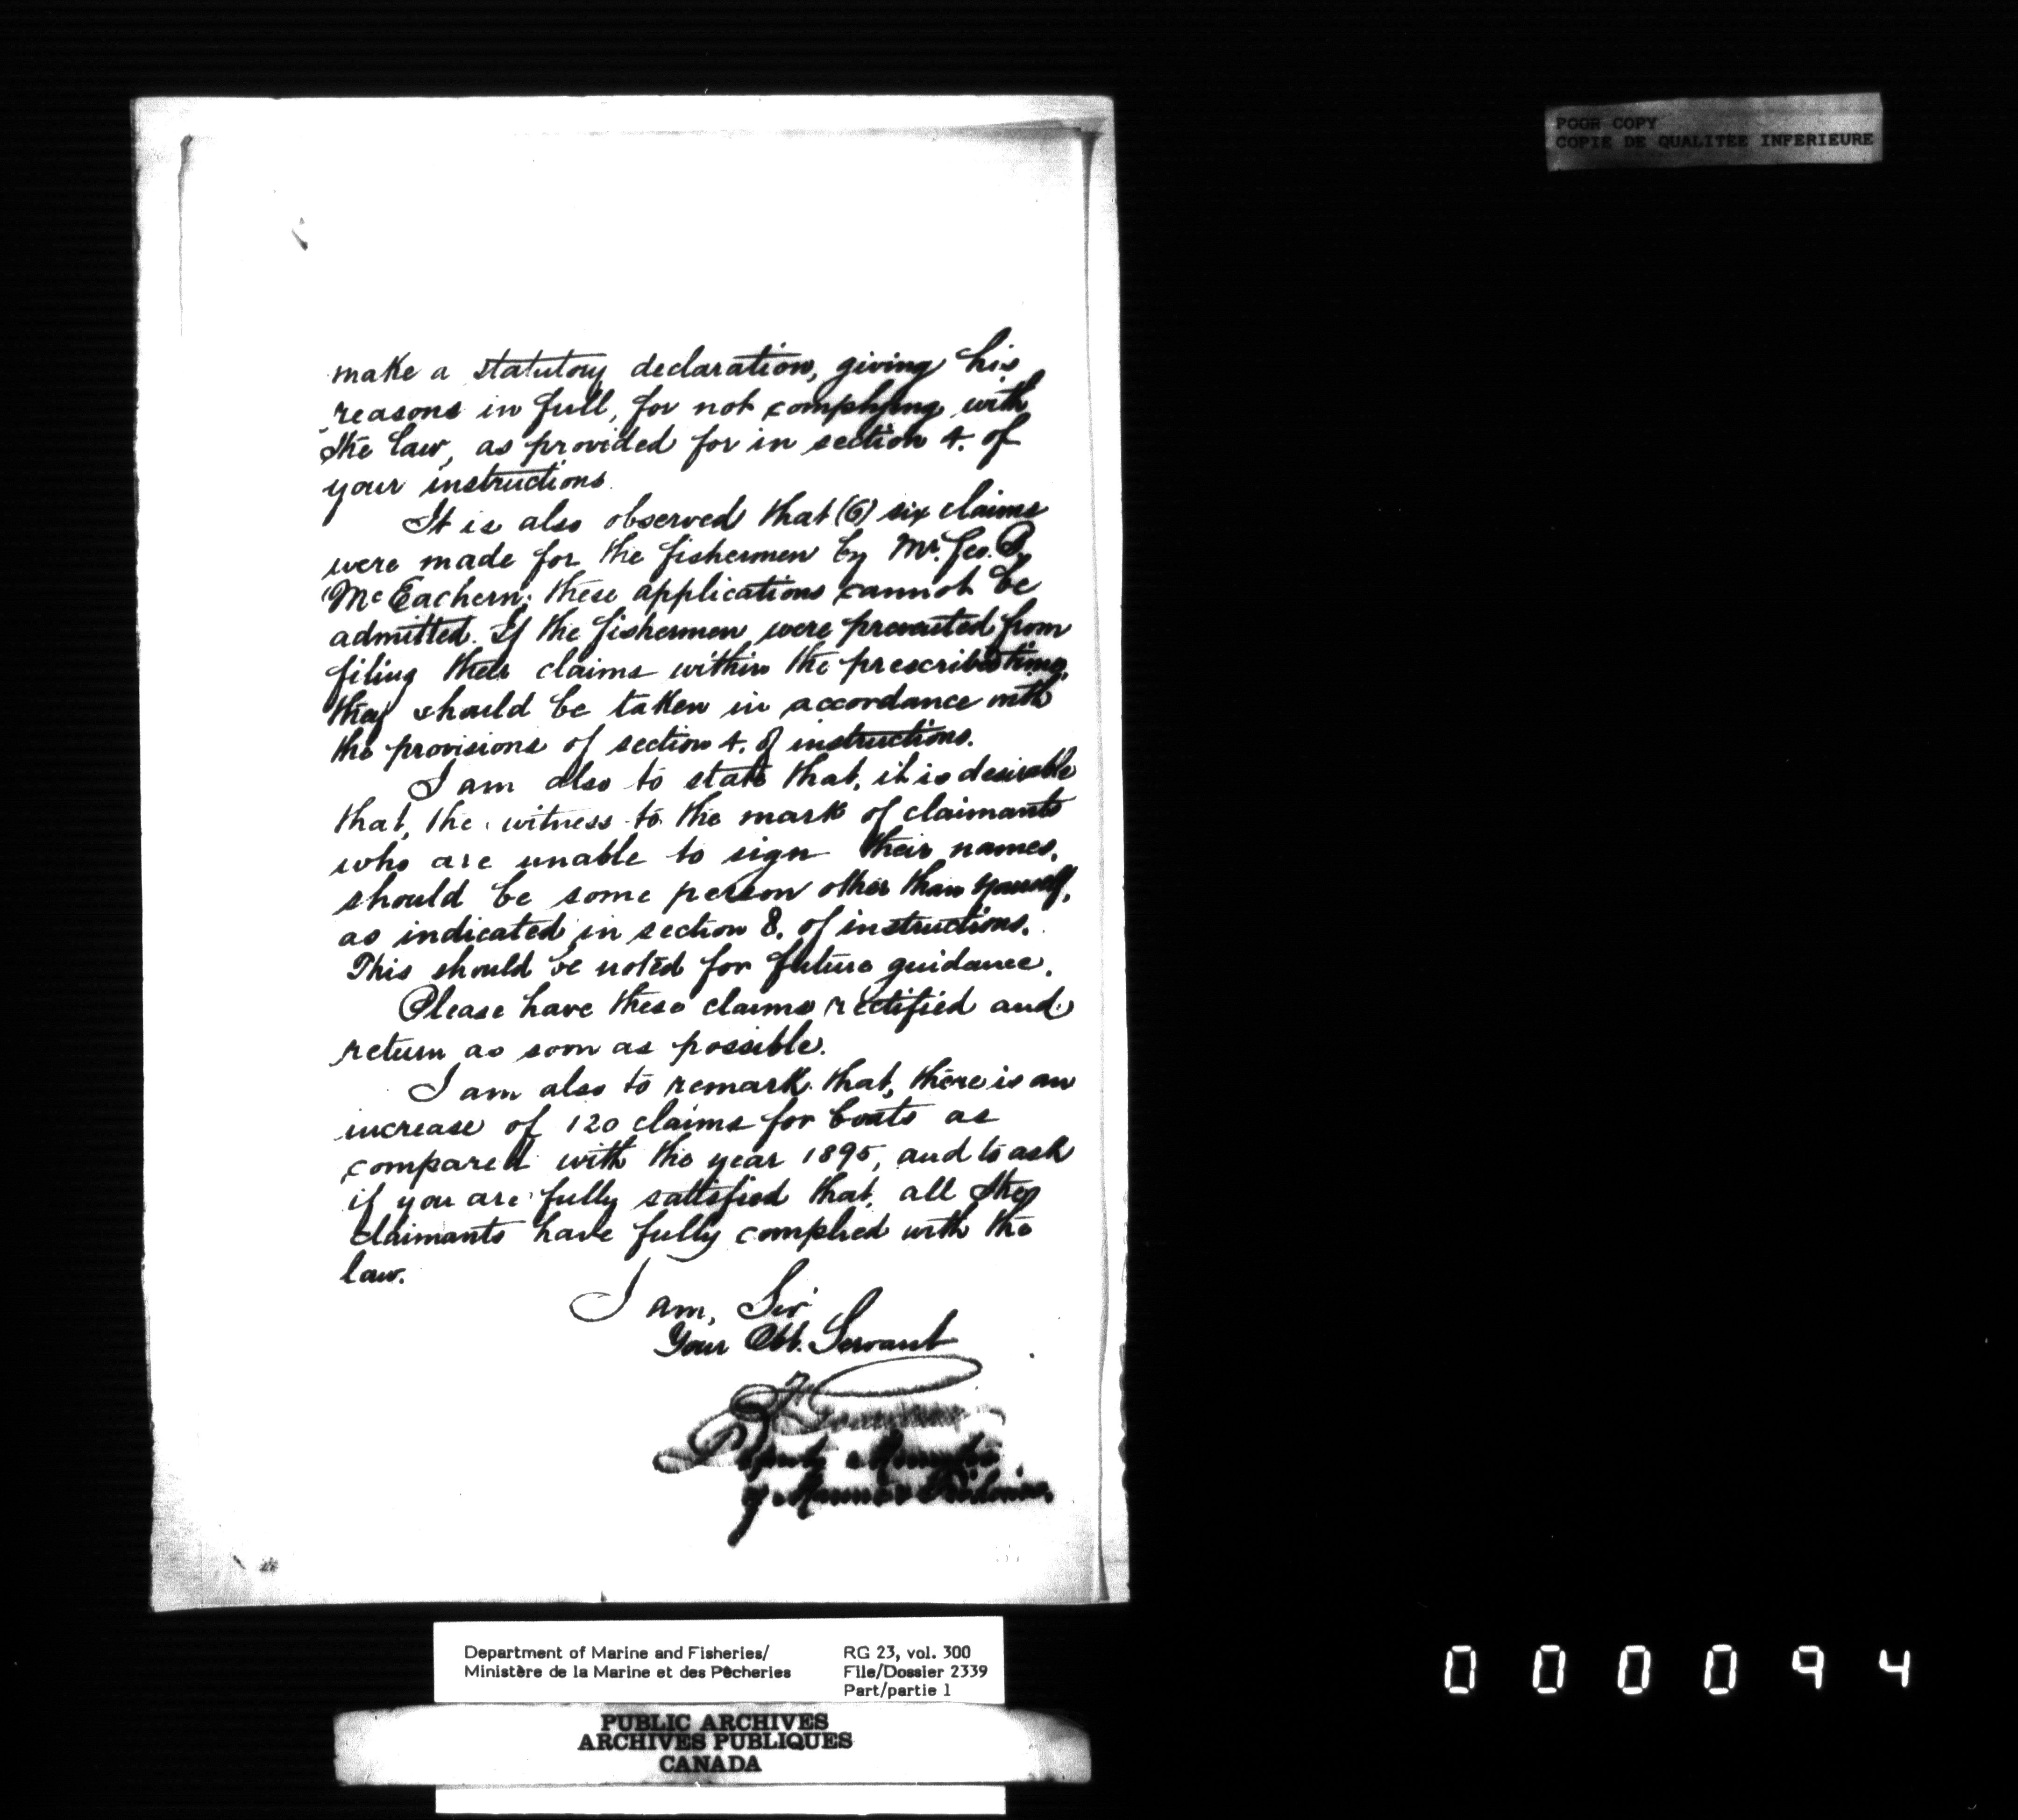 POOR COPY
COPIE DE QUALITEE INFERIEURE
make a statutory declaration, giving his
reasons in full, for not complying with
the law, as provided for in section 4. of
your instructions.
It is also observed that (6) six claims
were made for the fishermen by Mr. Geo. B.
McEachern; these applications cannot be
admitted. If the fishermen were prevented from
filing their claims within the prescribed time,
they should be taken in accordance with
the provisions of section 4. of instructions.
I am also to state that, it is desirable
that, the witness to the mark of claimants
who are unable to sign their names,
should be some person other than yourself,
as indicated in section 8. of instructions.
This should be noted for future guidance.
Please have these claims rectified and
return as soon as possible.
I am also to remark that, there is an
increase of 120 claims for boats as
compared with the year 1895, and to ask
if you are fully satisfied that, all the
claimants have fully complied with the
law.
I am, Sir
Your Obt. Servant
Deputy Minister
of Marine & Fisheries.
Department of Marine and Fisheries/
Ministère de la Marine et des Pêcheries
RG 23, vol. 300
File/Dossier 2339
Part/partie 1
PUBLIC ARCHIVES
ARCHIVES PUBLIQUES
CANADA
000094